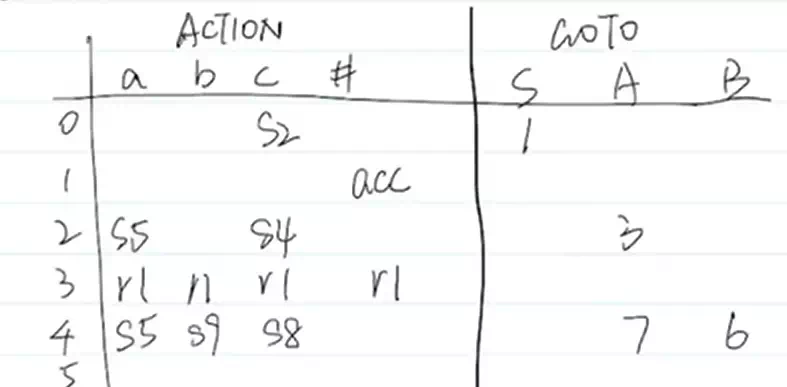 ACTION GOTO
a b c # S A B
0 S2 1
1 acc
2 S5 S4 3
3 r1 r1 r1 r1
4 S5 S9 S8 7 6
5